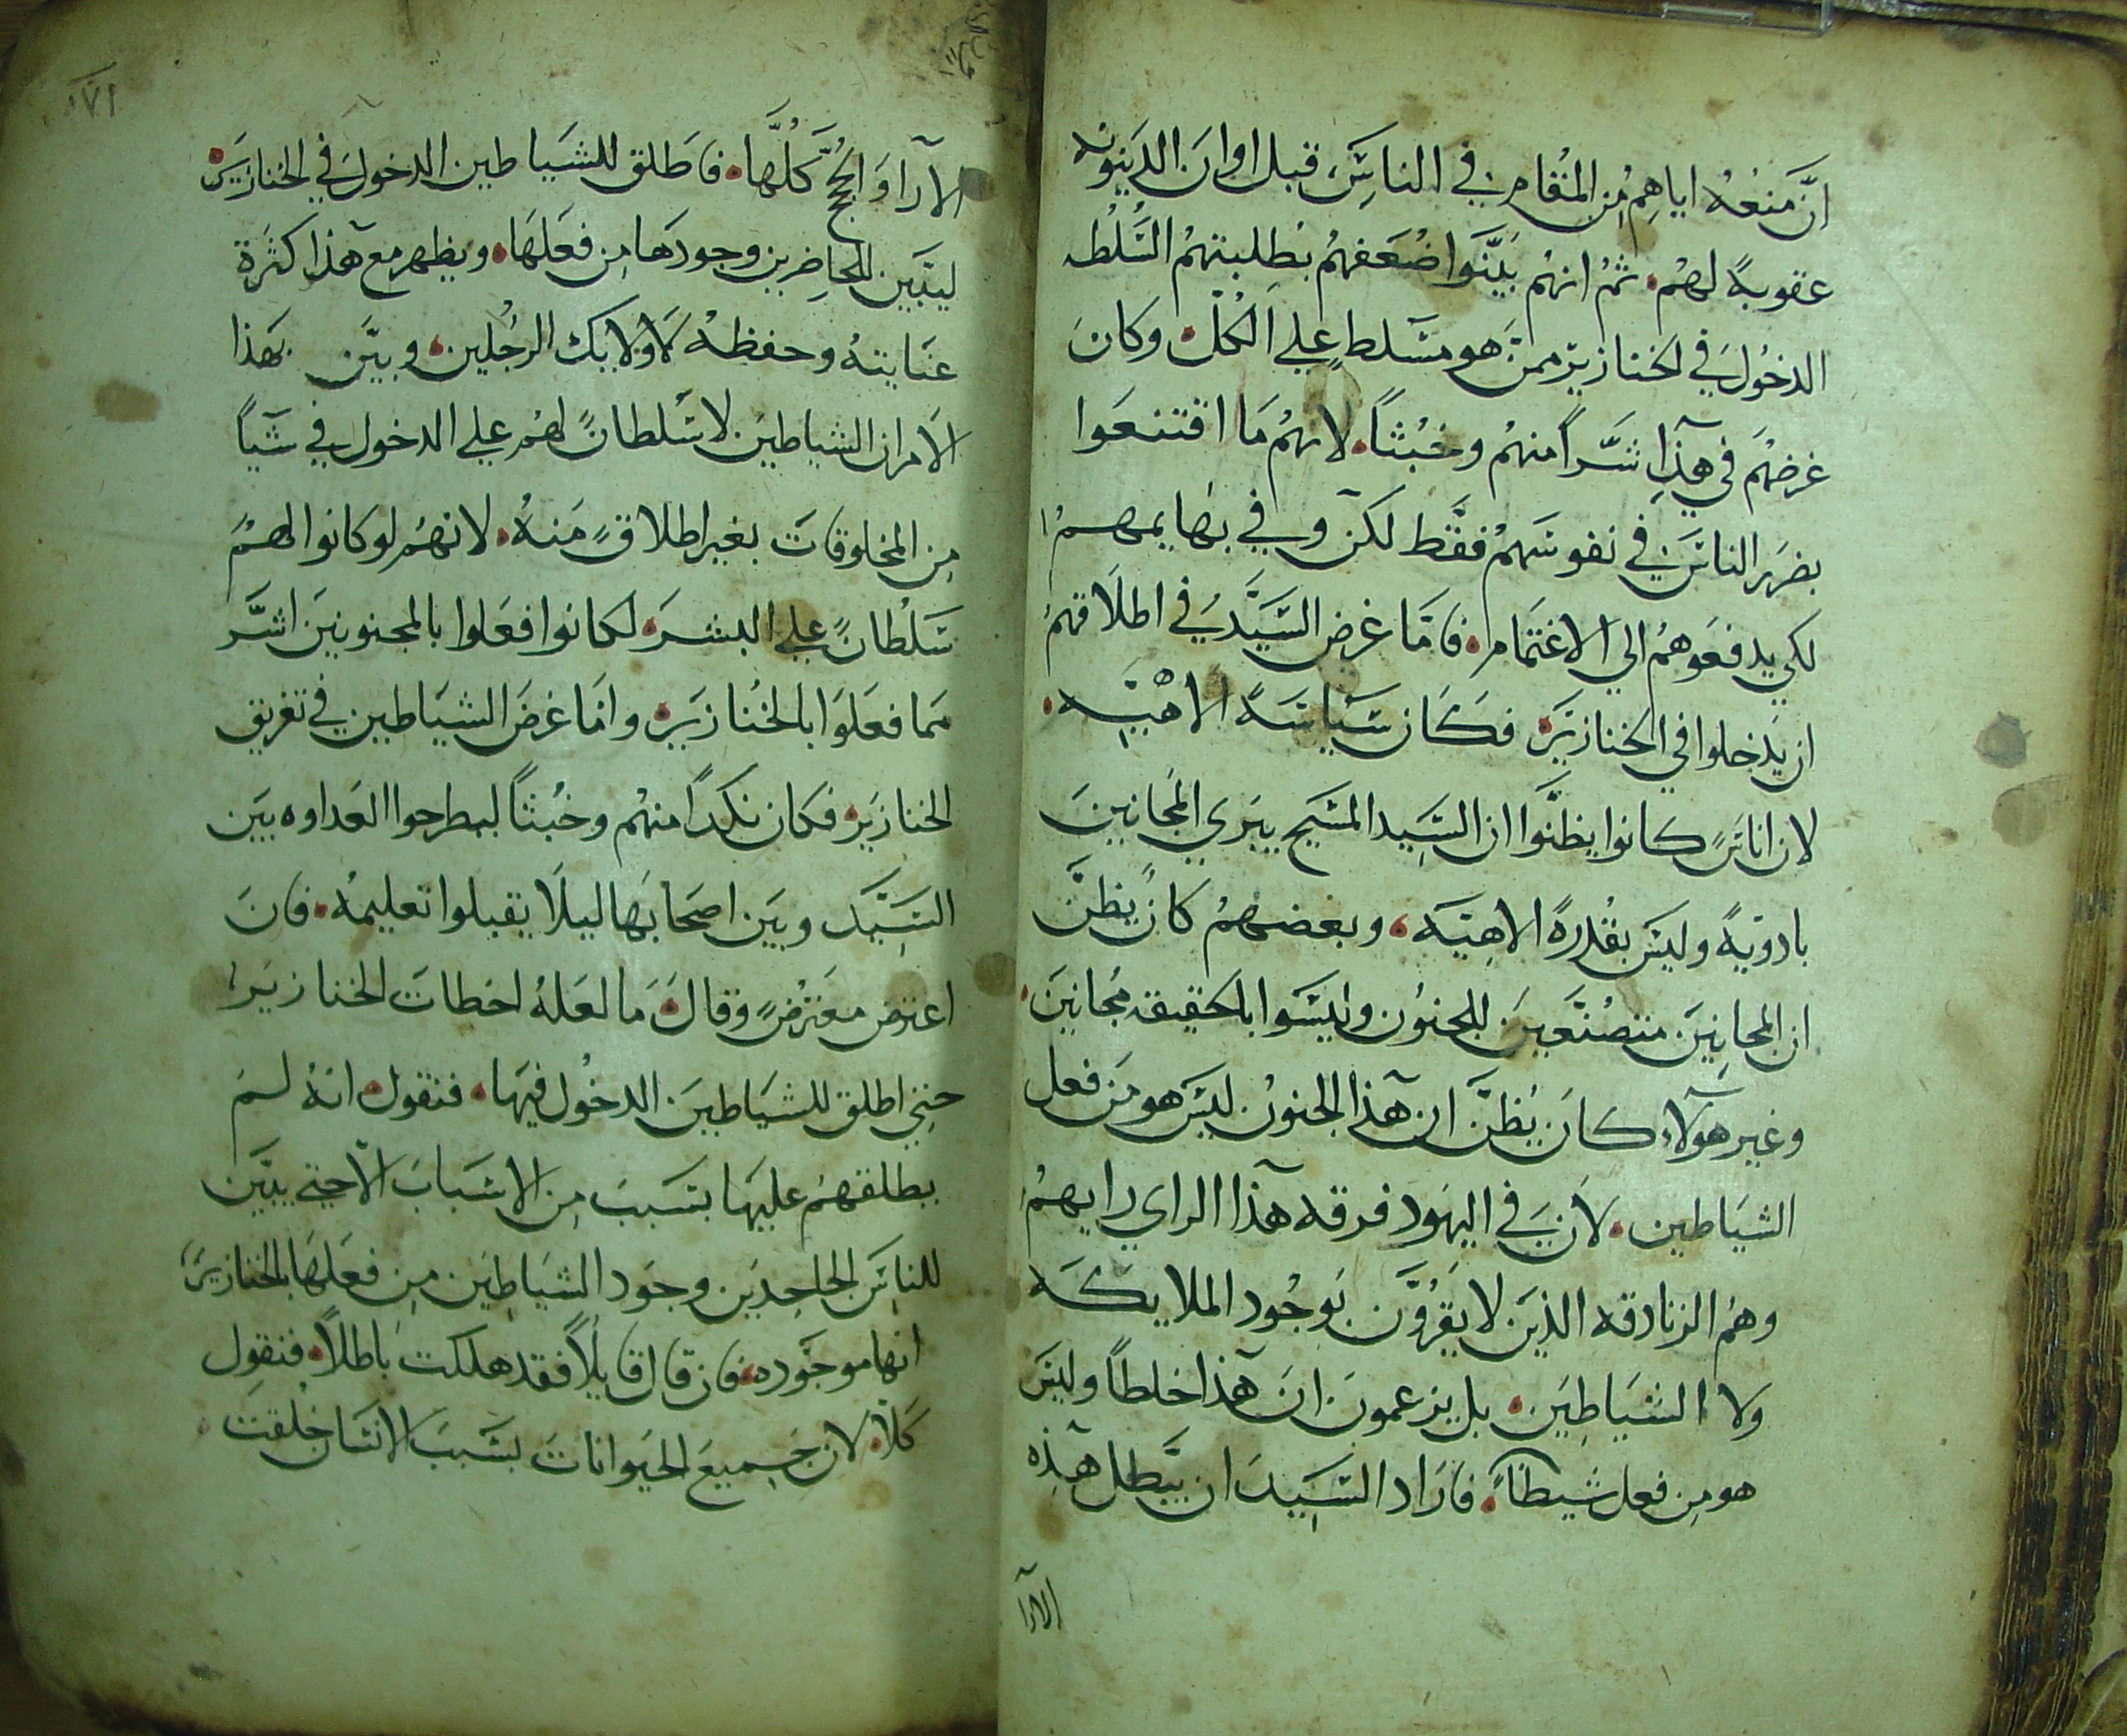 انَّ مَنعُهُ اياهم مِن المقام في الناس قبل اوان الدينونه
عقوبةً لهُم. ثم انهُم بيَّنوا ضُعفهُم بطلبتهم السُّلطه
الدخُول في الخنازير ممن هو مسَلط علي الكُل. وكان
غرضهُم في هذا شرًا منهُم وخبُثاً. لانهُم ما اقتنعوا
بضرر الناس في نفوسهم فقط لكن وفي بهايمهم
لكي يدفعوهُم الي الاغتمام. فامَّا غرض السَيَّد في اطلاقهم
ان يَدخلوا في الخنازير. فكان سَياسَةً الاهيَّه.
لان اناسٍ كانوا يظنَّوا ان السَيد المسَيح يبري المجانين
بادويةً وليسَ بقُدرةً الاهيَه. وبعضهُم كان يظنّ
ان المجانين متصُنَّعين للجنوُن وليسَوا بالحقيقه مجانين.
وغير هولاء كان يُظنَّ ان هذا الجنوُن ليسَ هو من فعل
الشيَاطين. لان في اليهود فرقه هذا الراي رايهُم
وهُم الزنادقه الذين لا يقرُوَّن بوجُود الملايكه
ولا الشيَاطين. بل يزعمون انَ هذا خلطاً وليسَ
هو مِن فعل شيطاناً. فاراد السَيد ان يبَّطل هذِه
الارا
١٧١
الآرا والحجج كُلَّها. فاطلق للشيَاطين الدخول في الخنازير.
ليتبين للحاضرين وجودها مِن فعلها. ويظهر مع هذا كثرة
عنايته وحفظهُ لاولايك الرجُلين. وبيَّن بهذا
الامر ان الشياطين لا سَلطانً لهُم علي الدخول في شياً
مِن المخلوقات بغير اطلاقٍ منهُ. لانهُم لو كانوا لهُم
سَلُطانً علي البشر. لكانوا فعَلوا بالمجنونين اشَّر
مما فعَلوا بالخنازير. وامَا غرضَ الشيَاطين في تغريق
الخنازير. فكان نكداً منهُم وخبُثاً ليطرحوا العَداوه بين
السَيَّد وبين اصحابها ليلا يقبلوا تعليمهُ. فان
اعترض معترضٍ وقال. ما لعلهُ اخطات الخنازير.
حتي اطلق للشيَاطين الدخُول فيها. فنقول. انهُ لم
يطلقهُم عليها بسَبب مِن الاسَباب الا حتي يبيَّن
للناس الجاحدين وجود الشيَاطين مِن فعلها بالخنازير.
انها موجوده. فان قال قايلاً فقد هلكت باطلاً. فنقول
كلا. لان جميع الحيوانات بسَبب الانسَان خُلقت